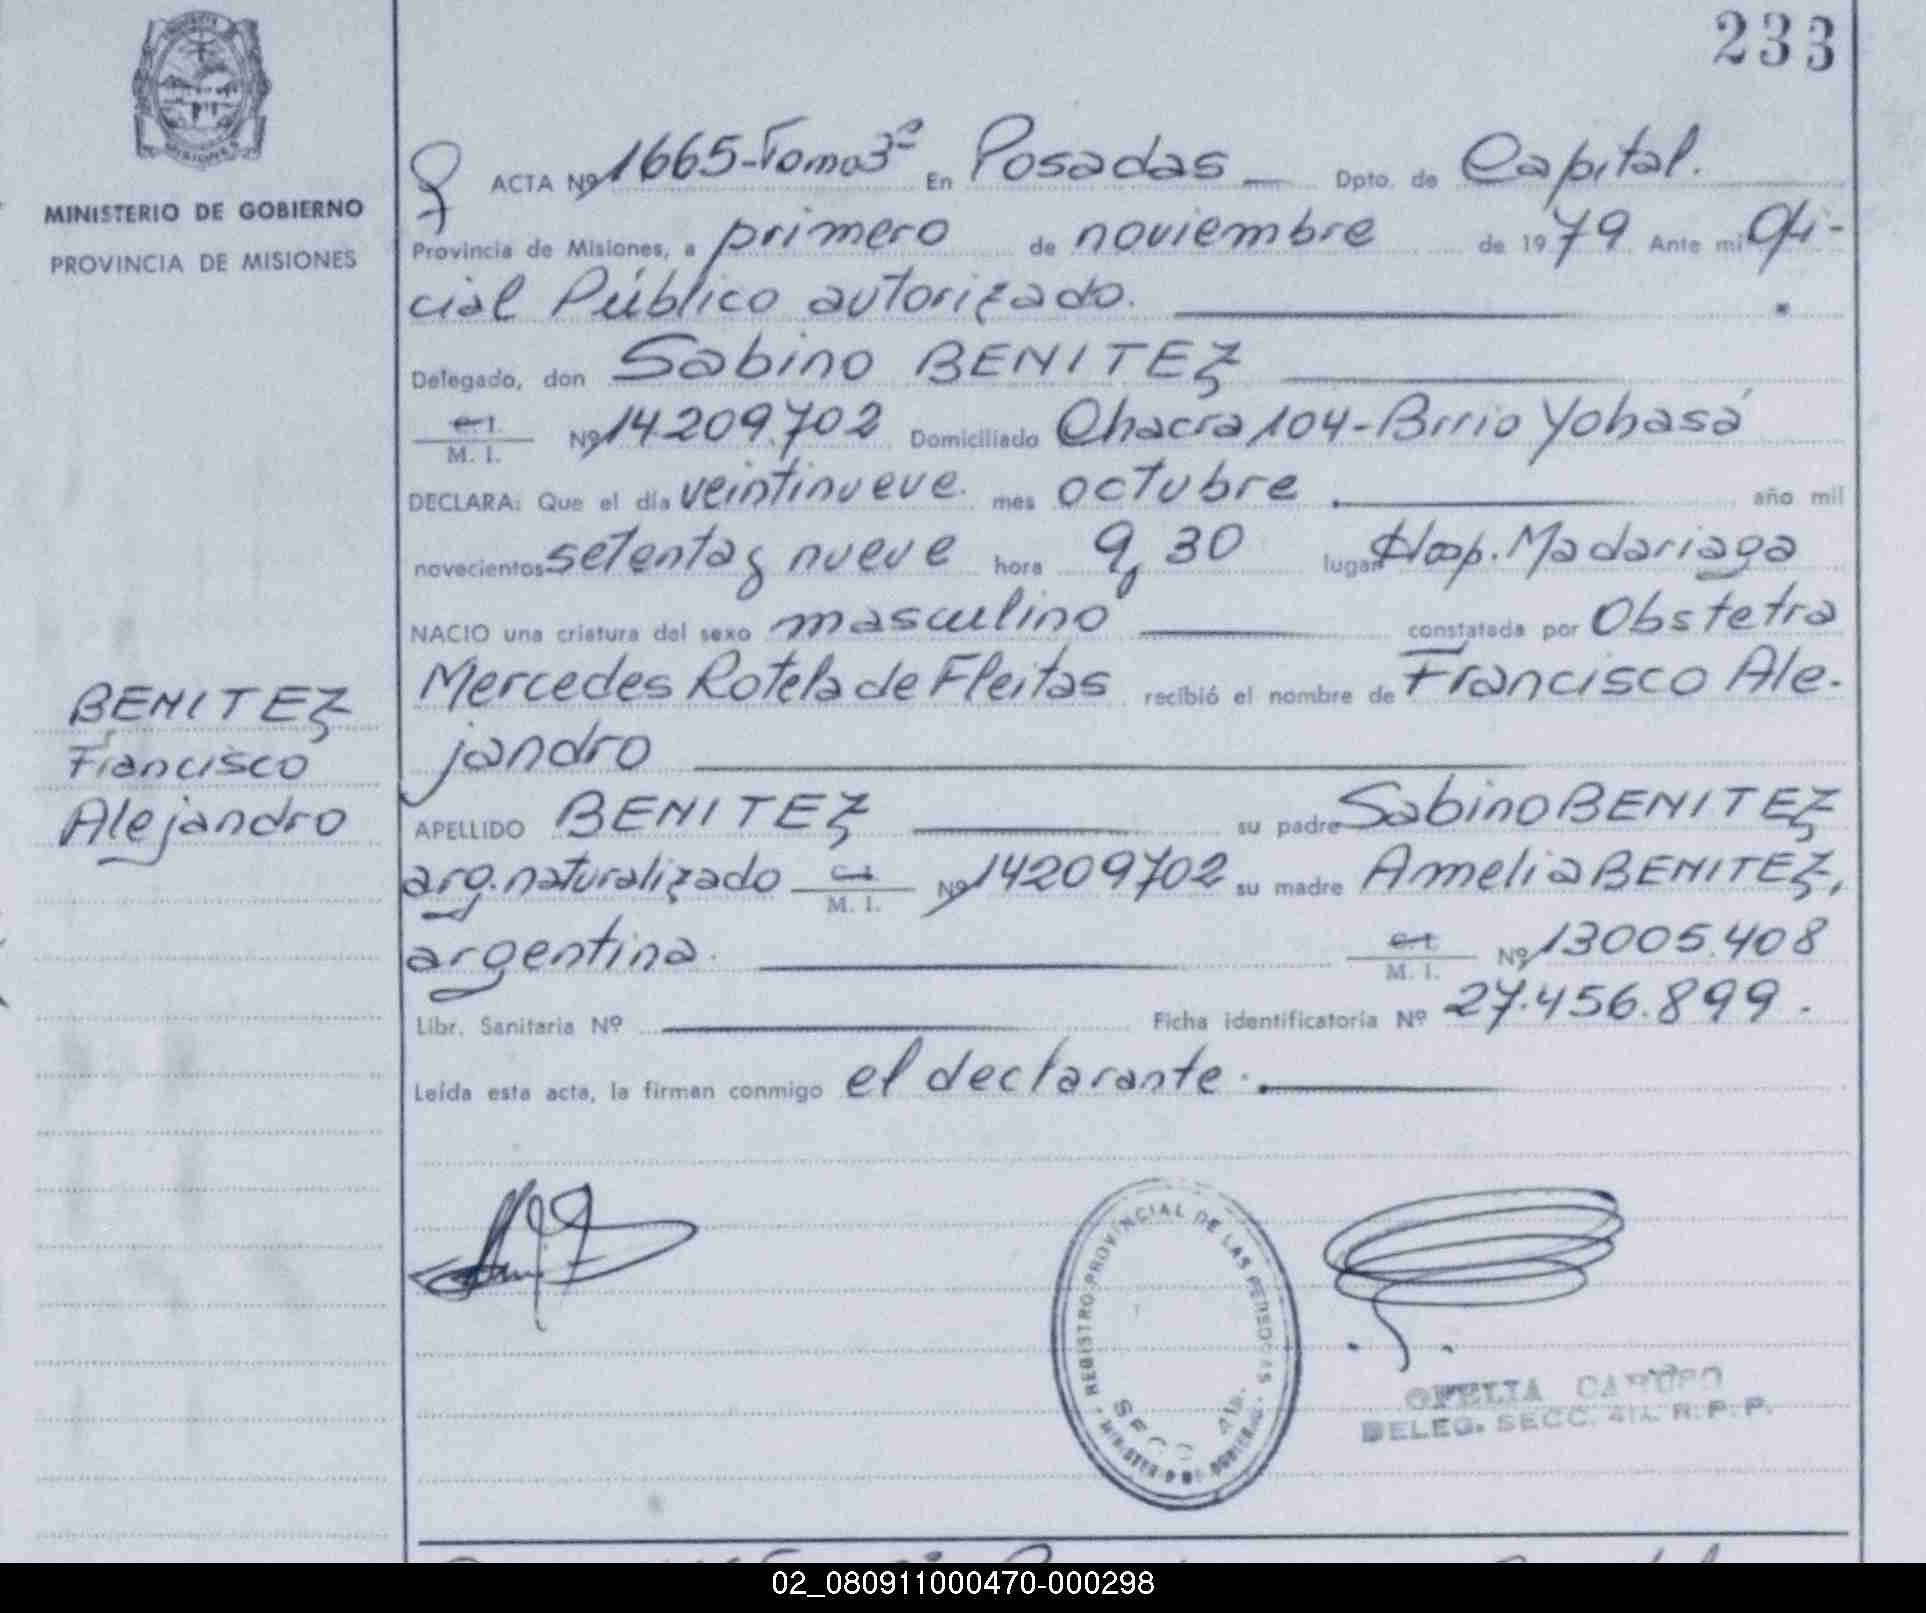 233
MISIONES
MINISTERIO DE GOBIERNO
PROVINCIA DE MISIONES
BENITEZ
Francisco
Alejandro
ACTA Nº 1665-Tomo 3º En Posadas Dpto. de Capital.
Provincia de Misiones, a primero de noviembre de 1979 Ante mi Ofi-
cial Público autorizado.
Delegado, don Sabino BENITEZ
C.I. / M. I. Nº 14209.702 Domiciliado Chacra 104-Brrio Yohasá
DECLARA: Que el día veintinueve. mes octubre año mil
novecientos setenta y nueve hora 9,30 lugar Hosp. Madariaga
NACIO una criatura del sexo masculino constatada por Obstetra
Mercedes Rotela de Fleitas recibió el nombre de Francisco Ale-
jandro
APELLIDO BENITEZ su padre Sabino BENITEZ
arg. naturalizado C.I. / M. I. Nº 14209702 su madre Amelia BENITEZ,
argentina. C.I. / M. I. Nº 13005.408
Libr. Sanitaria Nº Ficha identificatoria Nº 27.456.899.
Leída esta acta, la firman conmigo el declarante.
REGISTRO PROVINCIAL DE LAS PERSONAS
MINISTERIO DE GOBIERNO
SECC. 4ta.
OFELIA CARUSO
DELEG. SECC. 4ta. R. P. P.
02_080911000470-000298